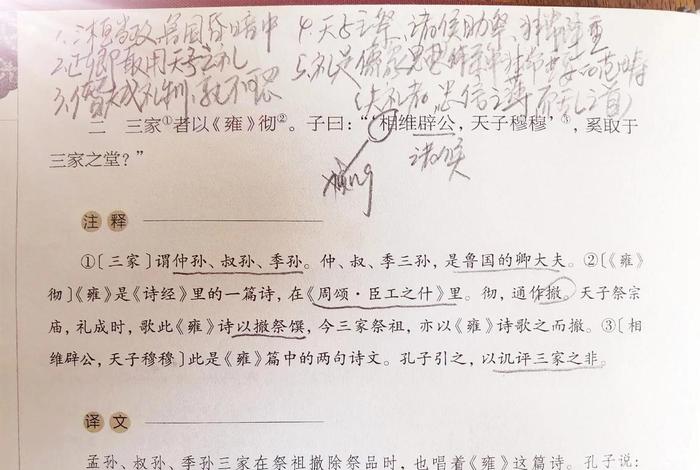 4.天子主祭，诸侯助祭，非常隆重
2.正卿敢用天子之礼
3.僭大成礼制，孰不可忍
5.礼是儒家思想
（夫礼者，忠信之薄，而乱之首）
二 三家①者以《雍》彻②。子曰：“‘相维辟公，天子穆穆’③，奚取于
三家之堂？”
xiàng
诸侯
注释
①〔三家〕谓仲孙、叔孙、季孙。仲、叔、季三孙，是鲁国的卿大夫。②〔《雍》
彻〕《雍》是《诗经》里的一篇诗，在《周颂·臣工之什》里。彻，通作撤。天子祭宗
庙，礼成时，歌此《雍》诗以撤祭馔，今三家祭祖，亦以《雍》诗歌之而撤。③〔相
维辟公，天子穆穆〕此是《雍》篇中的两句诗文。孔子引之，以讥评三家之非。
译文
孟孙、叔孙、季孙三家在祭祖撤除祭品时，也唱着《雍》这篇诗。孔子说：